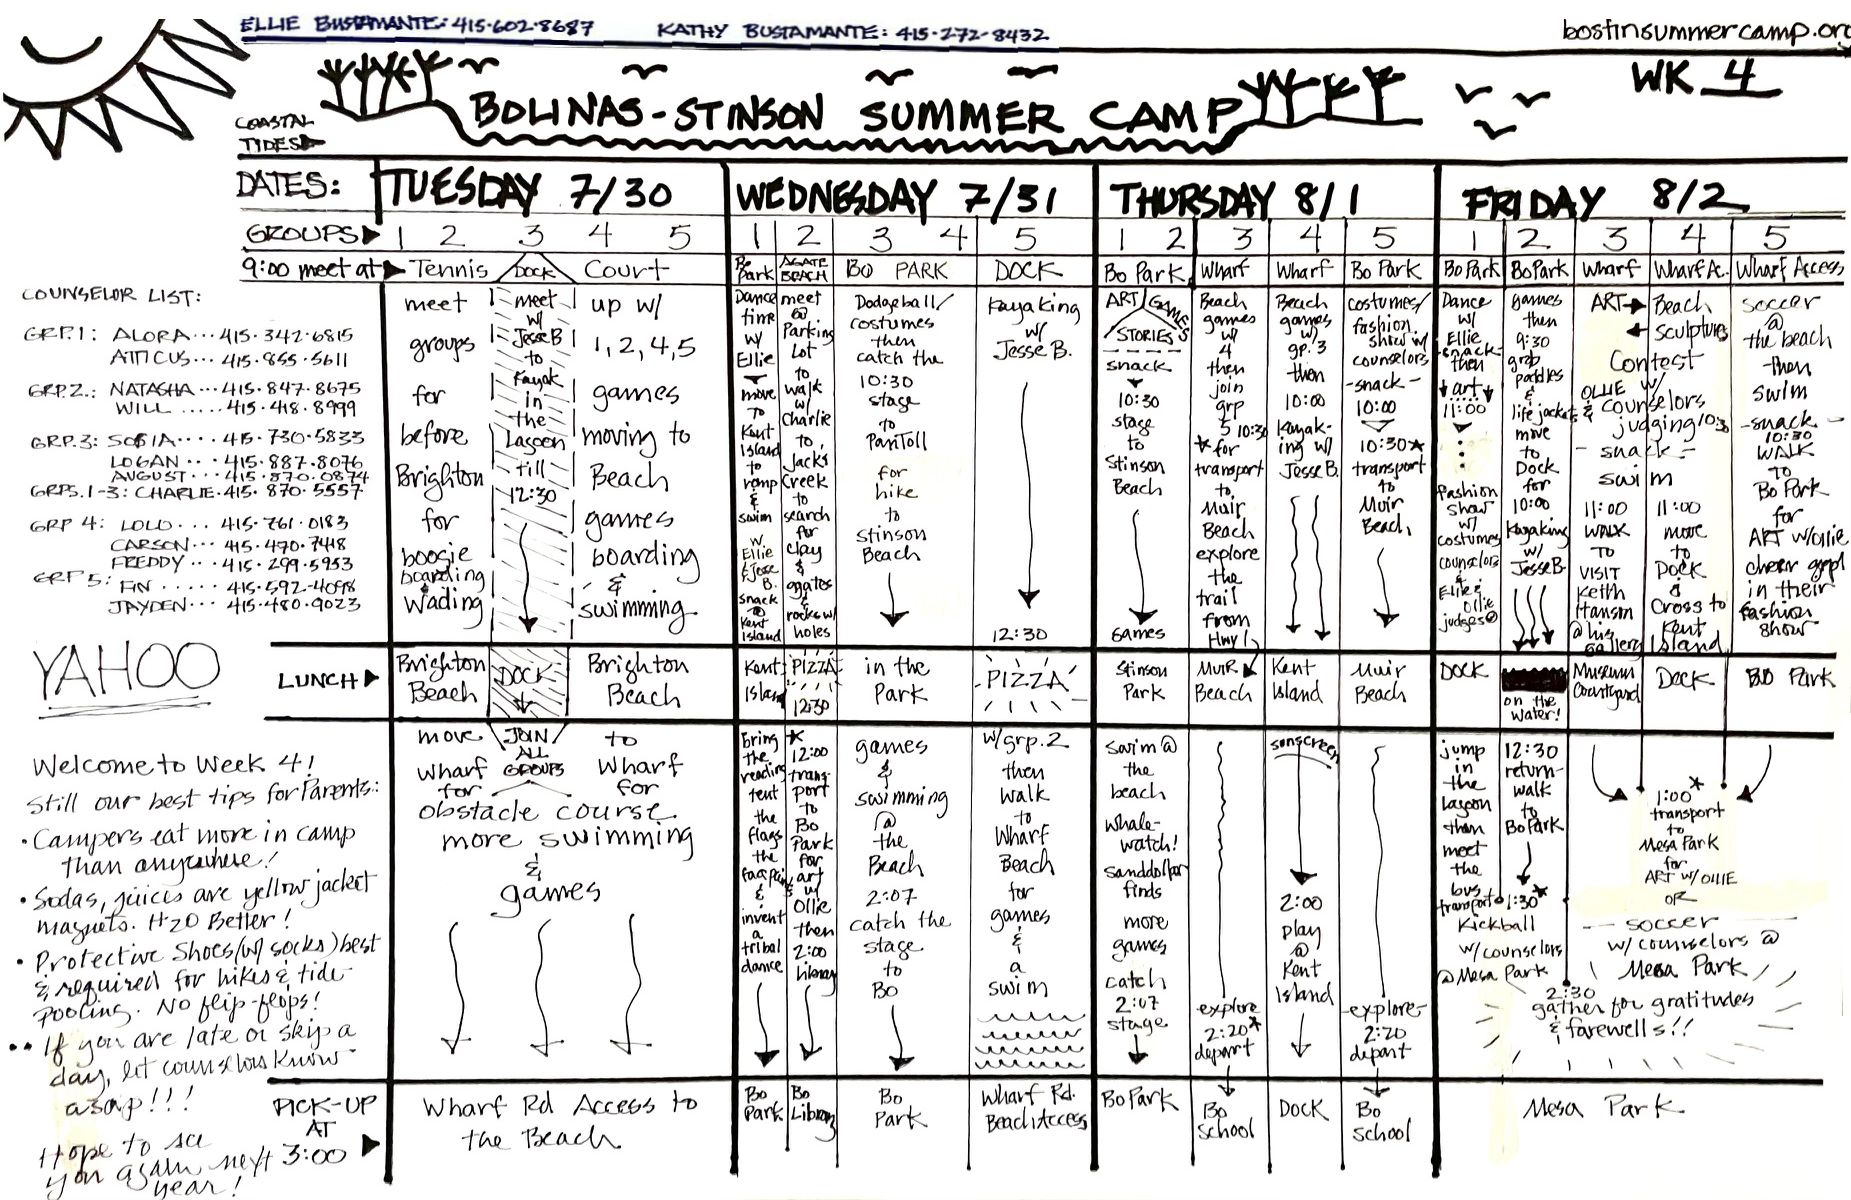 ELLIE BUSTAMANTE: 415·602·8687 KATHY BUSTAMANTE: 415·272·8432
bostinsummercamp.org
WK 4
BOLINAS-STINSON SUMMER CAMP
COASTAL
TIDES
DATES: TUESDAY 7/30 WEDNESDAY 7/31 THURSDAY 8/1 FRIDAY 8/2
GROUPS 1 2 3 4 5 1 2 3 4 5 1 2 3 4 5 1 2 3 4 5
9:00 meet at Tennis DOCK Court Bo Park AGATE BEACH BO PARK DOCK Bo Park Wharf Wharf Bo Park Bo Park Bo Park Wharf Wharf Ac. Wharf Access
COUNSELOR LIST:
GRP.1: ALORA···415·342·6815
ATTICUS···415·855·5611
GRP.2: NATASHA···415·847·8675
WILL .....415·418·8999
GRP.3: SOFIA····415·730·5833
LOGAN ··415·887·8076
AUGUST··415·870·0874
GRPS.1-3: CHARLIE·415·870·5557
GRP 4: LOLO ··· 415·761·0183
CARSON···415·470·7418
FREDDY ··415·299·5953
GRP 5: FIN .....415·592·4098
JAYDEN···415·480·9023
meet
groups
for
before
Brighton
for
boogie
boarding
wading
meet
w/
Jesse B
to
Kayak
in
the
Lagoon
till
12:30
up w/
1, 2, 4, 5
games
moving to
Beach
games
boarding
&
swimming
Dance
time
w/
Ellie
move
to
Kent
Island
to
romp
&
swim
w.
Ellie
& Jesse
B.
snack
@
Kent
Island
meet
@
Parking
Lot
to
walk
w/
Charlie
to
Jacks
Creek
to
search
for
clay
&
agates
&
rocks w/
holes
Dodgeball/
costumes
then
catch the
10:30
stage
to
PanToll
for
hike
to
Stinson
Beach
Kayaking
w/
Jesse B.
12:30
ART/GAMES
STORIES
snack
10:30
stage
to
Stinson
Beach
Games
Beach
games
w/
4
then
join
grp
5 10:30
* for
transport
to
Muir
Beach
explore
the
trail
from
Hwy 1
Beach
games
w/
gp. 3
then
10:00
Kayak-
ing w/
Jesse B.
costumes/
fashion
show w/
counselors
-snack-
10:00
10:30*
transport
to
Muir
Beach
Dance
w/
Ellie
-snack-
then
art
11:00
Fashion
show
w/
costumes
counselors
&
Ellie &
Ollie
judges @
games
then
9:30
grab
paddles
&
life jackets
move
to
Dock
for
10:00
Kayaking
w/
Jesse B.
ART Beach
sculptures
Contest
OLLIE w/
& counselors
judging 10:30
- snack -
swim
11:00
WALK
TO
VISIT
Keith
Hansen
@ his
gallery
11:00
move
to
DOCK
&
Cross to
Kent
Island
soccer
@
the beach
then
swim
-snack-
10:30
WALK
to
Bo Park
for
ART w/ollie
cheer grp 1
in their
fashion
show
YAHOO
LUNCH
Brighton
Beach
DOCK
Brighton
Beach
Kent
Island
PIZZA
12:30
in the
Park
PIZZA
Stinson
Park
Muir
Beach
Kent
Island
Muir
Beach
DOCK
on the
water!
Museum
Courtyard
Dock
Bo Park
Welcome to Week 4!
Still our best tips for Parents:
·Campers eat more in camp
than anywhere!
·Sodas, juices are yellow jacket
magnets. H2O Better!
·Protective Shoes (w/ socks) best
& required for hikes & tide
pooling. No flip-flops!
··If you are late or skip a
day, let counselors know
asap!!!
Hope to see
you again next
year!
move
wharf
for
JOIN
ALL
GROUPS
to
wharf
for
obstacle course
more swimming
&
games
bring
the
reading
tent
the
flags
the
face paint
&
invent
a
tribal
dance
*
12:00
trans-
port
to
Bo
Park
for
art
w/
Ollie
then
2:00
Library
games
&
swimming
@
the
Beach
2:07
catch the
stage
to
Bo
w/grp. 2
then
walk
to
Wharf
Beach
for
games
&
a
swim
swim @
the
beach
whale-
watch!
sanddollar
finds
more
games
catch
2:07
stage
explore
2:20*
depart
sunscreen
2:00
play
@
Kent
Island
-explore-
2:20
depart
jump
in
the
lagoon
then
meet
the
bus
transport
Kickball
w/counselors
@ Mesa Park
12:30
return-
walk
to
Bo Park
1:30*
1:00*
transport
to
Mesa Park
for
ART w/ OLLIE
OR
soccer
w/ counselors @
Mesa Park
2:30
gather for gratitudes
& farewells!!
PICK-UP
AT
3:00
Wharf Rd Access to
the Beach
Bo
Park
Bo
Library
Bo
Park
Wharf Rd.
Beach Access
Bo Park
Bo
School
DOCK
Bo
School
Mesa Park